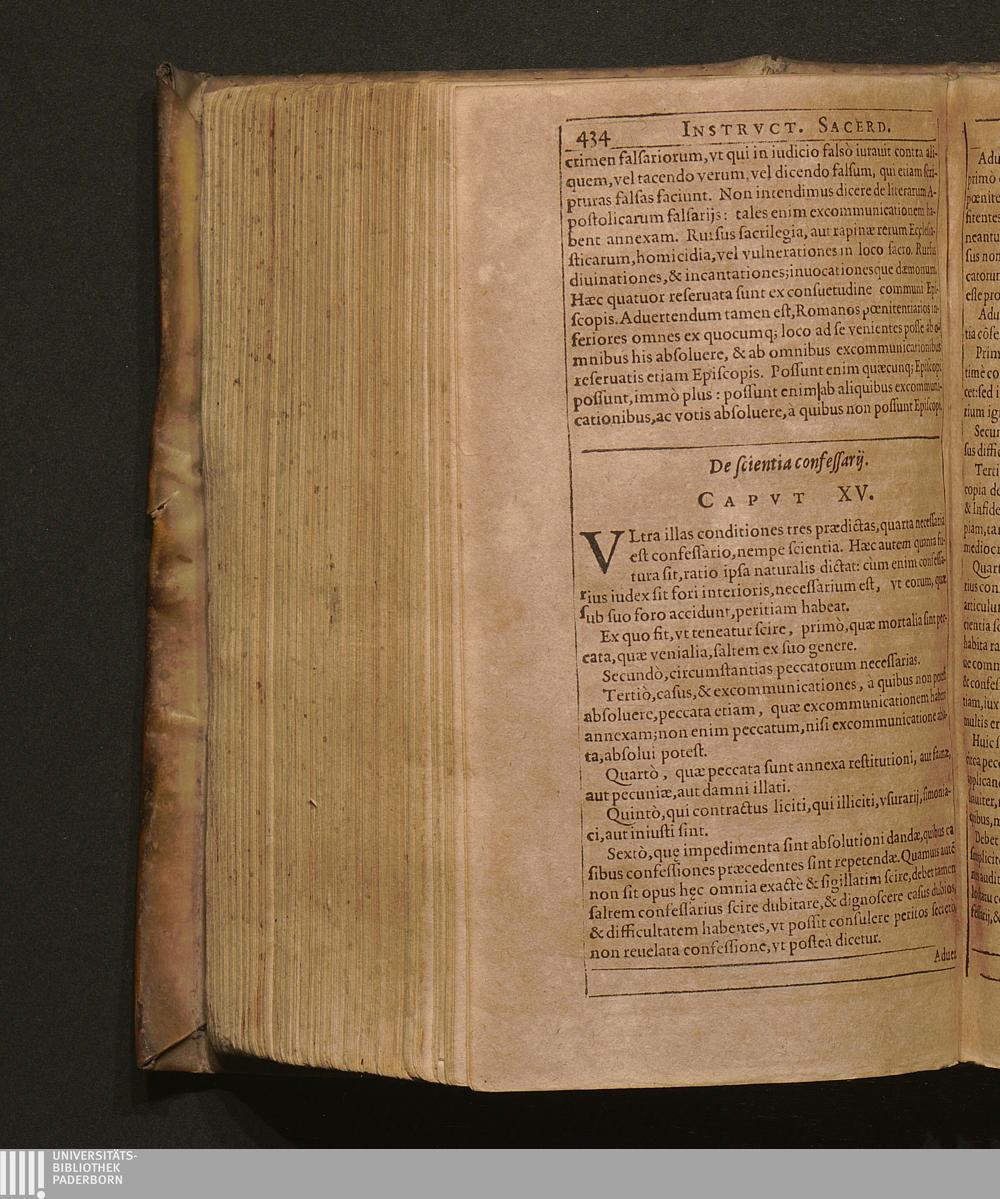 434 INSTRVCT. SACERD.
crimen falsariorum, vt qui in iudicio falsò iurauit contra ali-
quem, vel tacendo verum, vel dicendo falsum, qui etiam scri-
pturas falsas faciunt. Non intendimus dicere de literarum A-
postolicarum falsarijs: tales enim excommunicationem ha-
bent annexam. Rursus sacrilegia, aut rapinæ rerum Ecclesia-
sticarum, homicidia, vel vulnerationes in loco sacro. Rursus
diuinationes, & incantationes; inuocationesque dæmonum.
Hæc quatuor reseruata sunt ex consuetudine communi Epi-
scopis. Aduertendum tamen est, Romanos pœnitentiarios in-
feriores omnes ex quocumq; loco ad se venientes posse ab o-
mnibus his absoluere, & ab omnibus excommunicationibus
reseruatis etiam Episcopis. Possunt enim quæcunq; Episcopi
possunt, immò plus: possunt enim ab aliquibus excommuni-
cationibus, ac votis absoluere, à quibus non possunt Episcopi.
De scientia confessarij.
CAPVT XV.
VLtra illas conditiones tres prædictas, quarta necessaria
est confessario, nempe scientia. Hæc autem quanta fu-
tura sit, ratio ipsa naturalis dictat: cùm enim confessa-
rius iudex sit fori interioris, necessarium est, vt eorum, quæ
sub suo foro accidunt, peritiam habeat.
Ex quo fit, vt teneatur scire, primò, quæ mortalia sint pec-
cata, quæ venialia, saltem ex suo genere.
Secundò, circumstantias peccatorum necessarias.
Tertiò, casus, & excommunicationes, à quibus non potest
absoluere, peccata etiam, quæ excommunicationem habent
annexam; non enim peccatum, nisi excommunicatione abla-
ta, absolui potest.
Quartò, quæ peccata sunt annexa restitutioni, aut famæ,
aut pecuniæ, aut damni illati.
Quintò, qui contractus liciti, qui illiciti, vsurarij, simonia-
ci, aut iniusti sint.
Sextò, quę impedimenta sint absolutioni dandæ, quibus ca
sibus confessiones præcedentes sint repetendæ. Quamuis autē
non sit opus hęc omnia exactè & sigillatim scire, debet tamen
saltem confessarius scire dubitare, & dignoscere casus dubios,
& difficultatem habentes, vt possit consulere peritos secretò,
non reuelata confessione, vt postea dicetur.
Aduer
UNIVERSITÄTS-
BIBLIOTHEK
PADERBORN